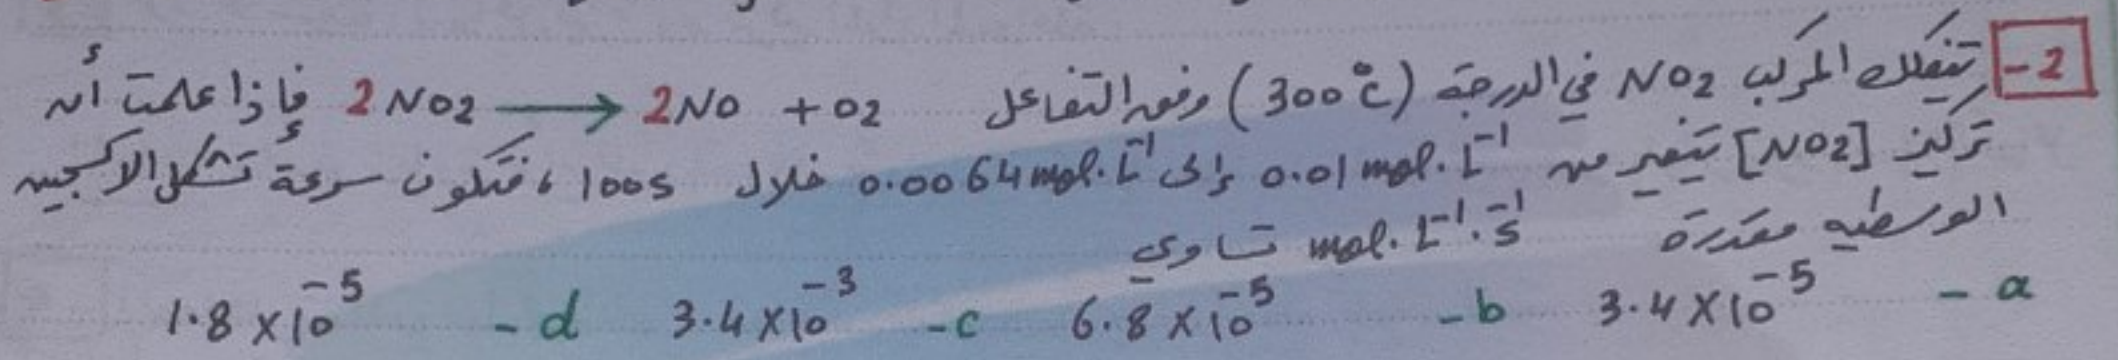 2- تتفكك المركب NO2 في الدرجة (300°C) وفق التفاعل 2NO2 → 2NO + O2 فإذا علمت أن
تركيز [NO2] يتغير من 0.01 mol.L⁻¹ إلى 0.0064 mol.L⁻¹ خلال 100s ، فتكون سرعة تشكل الاكسجين
الوسطية مقدرة mol.L⁻¹.s⁻¹ تساوي
a - 3.4×10⁻⁵ b - 6.8×10⁻⁵ c - 3.4×10⁻³ d - 1.8×10⁻⁵